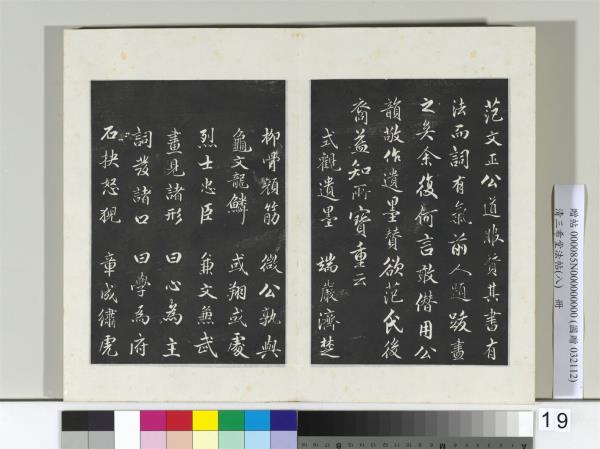 范文正公道服贊其書有
法而詞有氣前人題跋盡
之矣余復何言敢僭用公
韻敬作遺墨贊欲范氏後
裔益知所寶重云
式觀遺墨 端嚴濟楚
柳骨顏筋 微公孰與
龜文龍鱗 或翔或處
烈士忠臣 兼文兼武
畫見諸形 曰心為主
詞發諸口 曰學為府
石抉怒猊 章成繡虎
贈帖 000085N000000000 (國贈 032112)
清三希堂法帖(八) 冊
19